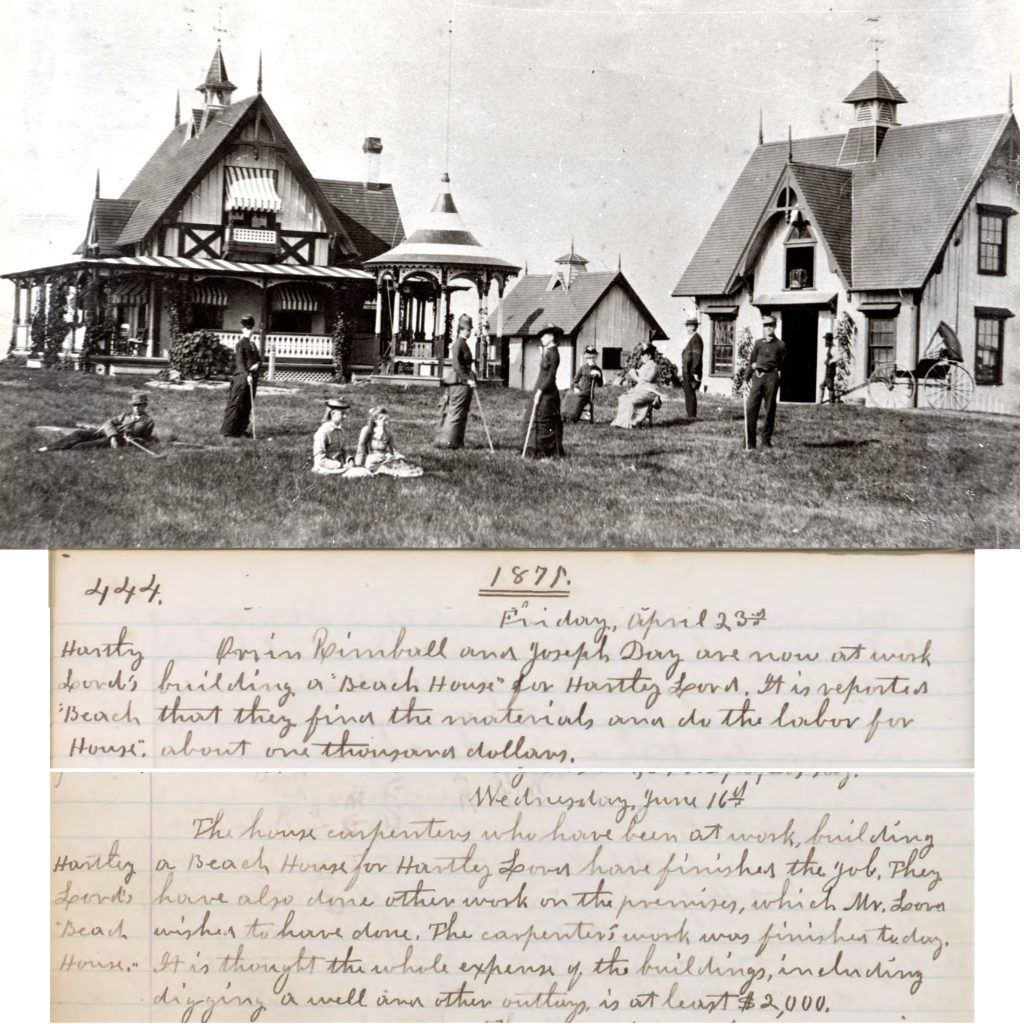 444.
1875.
Friday, April 23rd
Hartley
Lord's
"Beach
House".
Orrin Kimball and Joseph Day are now at work
building a "Beach House" for Hartley Lord. It is reported
that they find the materials and do the labor for
about one thousand dollars.
Wednesday, June 16th
Hartley
Lord's
"Beach
House."
The house carpenters who have been at work, building
a Beach House for Hartley Lord have finished the job. They
have also done other work on the premises, which Mr. Lord
wished to have done. The carpenter's work was finished today.
It is thought the whole expense of the buildings, including
digging a well and other outlays, is at least $2,000.